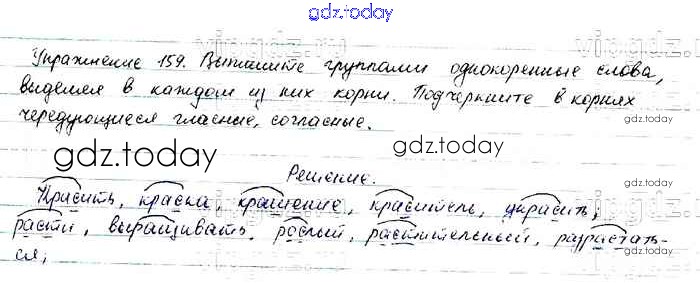 gdz.today
Упражнение 159. Выпишите группами однокоренные слова,
выделяя в каждом из них корни. Подчеркните в корнях
чередующиеся гласные, согласные.
gdz.today
gdz.today
Решение.
Красить, краска, крашение, краситель, украсить,
расти, выращивать, рослый, растительный, разрастать-
ся,
gdz.today
gdz.today